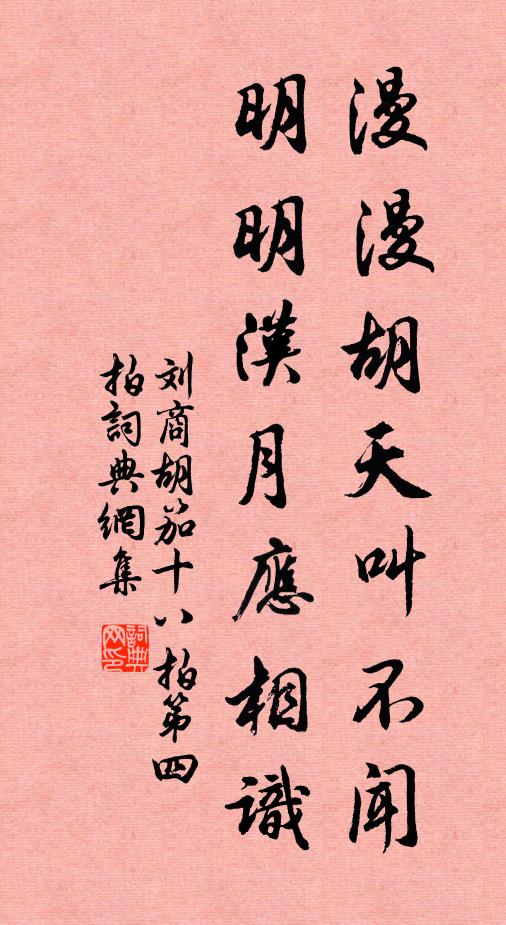 漫漫胡天叫不闻
明明漢月應相識
刘商胡笳十八拍第四
拍詞典網集
詞典网印